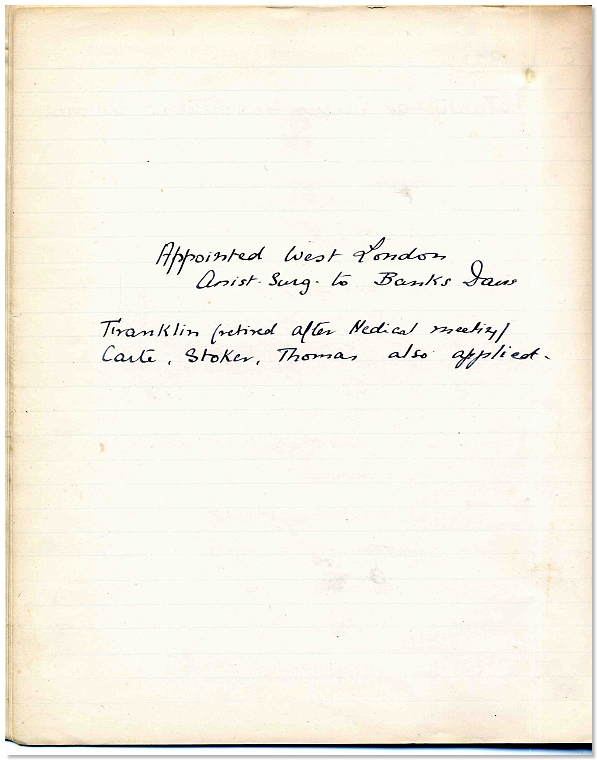 Appointed West London
Assist. Surg. to Banks Davis
Franklin (retired after Medical meeting)
Carte, Stoker, Thomas also applied.